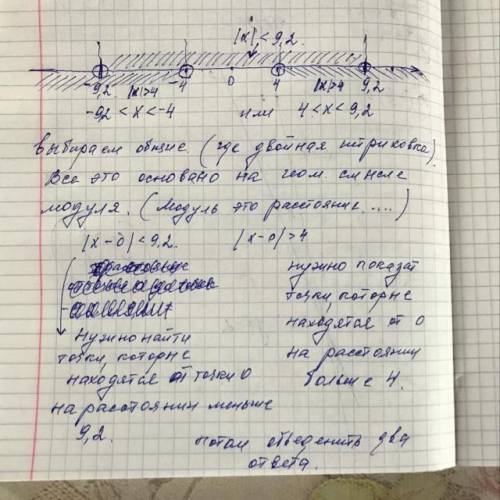 |x| < 9,2.
-9,2 |x|>4 -4 0 4 |x|>4 9,2
-9,2 < x < -4 или 4 < x < 9,2
Выбираем общие (где двойная штриховка).
Все это основано на геом. смысле
модуля. (Модуль это расстояние ....)
|x-0| < 9,2. |x-0| > 4
Нужно найти
точки, которые
находятся от точки 0
на расстоянии меньше
9,2.
нужно показат
точки, которые
находятся от 0
на расстоянии
больше 4.
потом объеденить два
ответа.